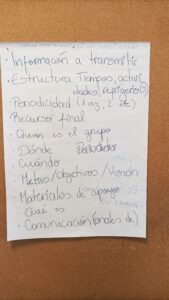 · Información a transmitir
· Estructura Tiempos, activi
dades, refrigerio(?)
· Periodicidad (1 reg, 2 etc)
· Recurso final
· Quien es el grupo
· Dónde
· Cuándo
· Metas/Objetivos/Visión
· Materiales de apoyo
· Qué es
· Comunicación (canales de)